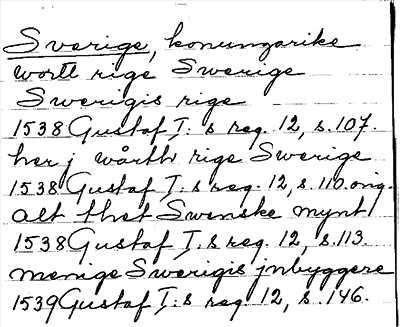 Sverige, konungarike
wortt rige Swerige
Swerigis rige
1538 Gustaf I:s reg. 12, s. 107.
her j wårth rige Swerige
1538 Gustaf I:s reg. 12, s. 110. orig.
alt thet Swenske mynt
1538 Gustaf I:s reg. 12, s. 113.
menige Swerigis jnbyggere
1539 Gustaf I:s reg 12, s. 146.